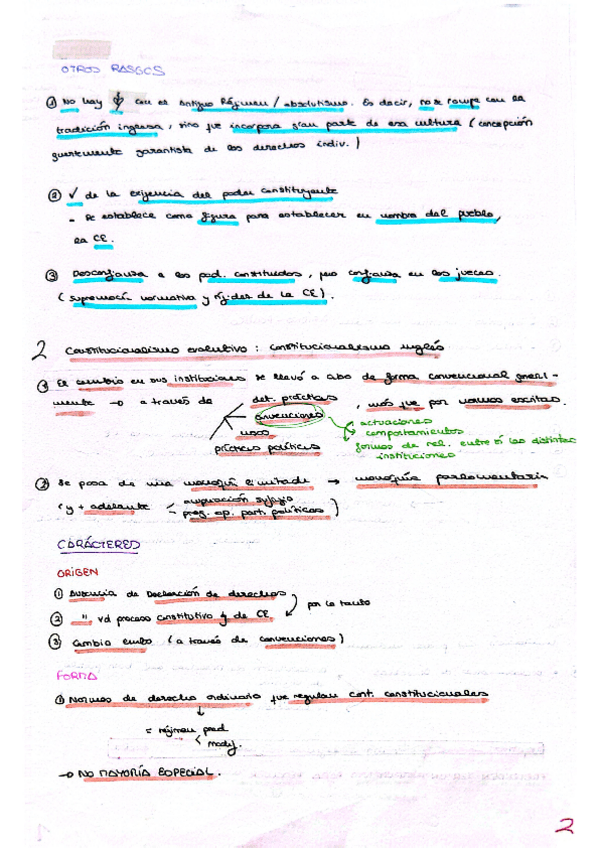 OTROS RASGOS
① No hay con el Antiguo Régimen / absolutismo. Es decir, no se rompe con la
tradición inglesa, sino que incorpora gran parte de esa cultura (concepción
fuertemente garantista de los derechos indiv.)
② ✓ de la exigencia del poder constituyente
- Se establece como figura para establecer en nombre del pueblo,
la CE.
③ Desconfianza a los pod. constituidos, pero confianza en los jueces.
(supremacía normativa y rigidez de la CE).
2 Constitucionalismo evolutivo: constitucionalismo inglés
① El cambio en sus instituciones se llevó a cabo de forma convencional general-
mente → a través de det. prácticas, más que por normas escritas.
convenciones
usos
prácticas políticas
actuaciones
comportamientos
formas de rel. entre sí las distintas
instituciones
② Se pasa de una monarquía limitada → monarquía parlamentaria
(y + adelante ampliación sufragio
- prog. ap. part. políticos)
CARÁCTERED
ORIGEN
① Ausencia de Declaración de derechos
por lo tanto
② " vd proceso constitutivo y de CE
③ Cambia (a través de convenciones)
FORMA
① Normas de derecho ordinario que regulan cont. constitucionales
↓
= régimen prod
modif.
→ NO MAYORÍA ESPECIAL.
2